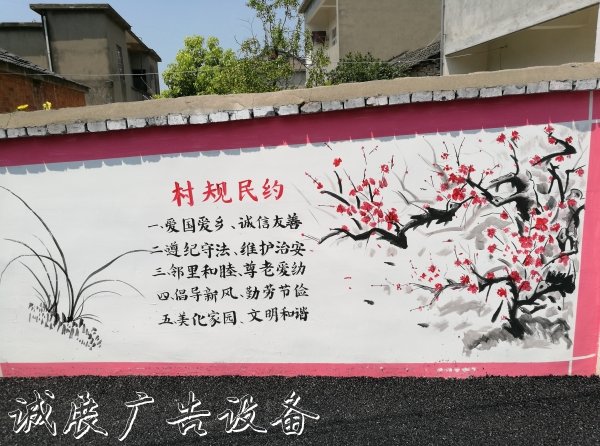 村规民约
一.爱国爱乡、诚信友善
二.遵纪守法、维护治安
三.邻里和睦、尊老爱幼
四.倡导新风、勤劳节俭
五.美化家园、文明和谐
诚展广告设备